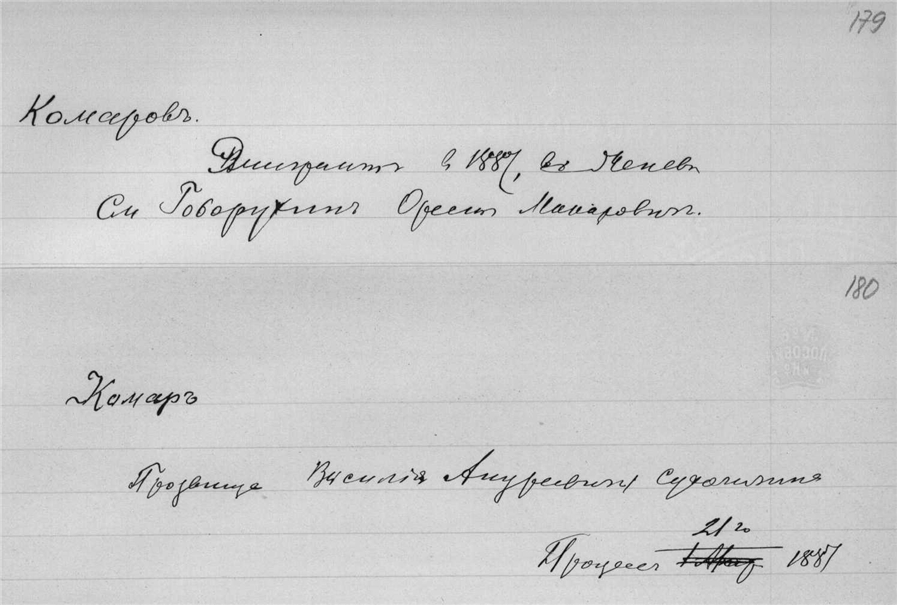 179
Комаровъ.
Эмигрантъ в 1887, въ Женеве
См Говорухинъ Орестъ Макаровичъ.
180
Комаръ
Прозвище Василія Андреевича Сухомлина
21го
Процессъ 1887